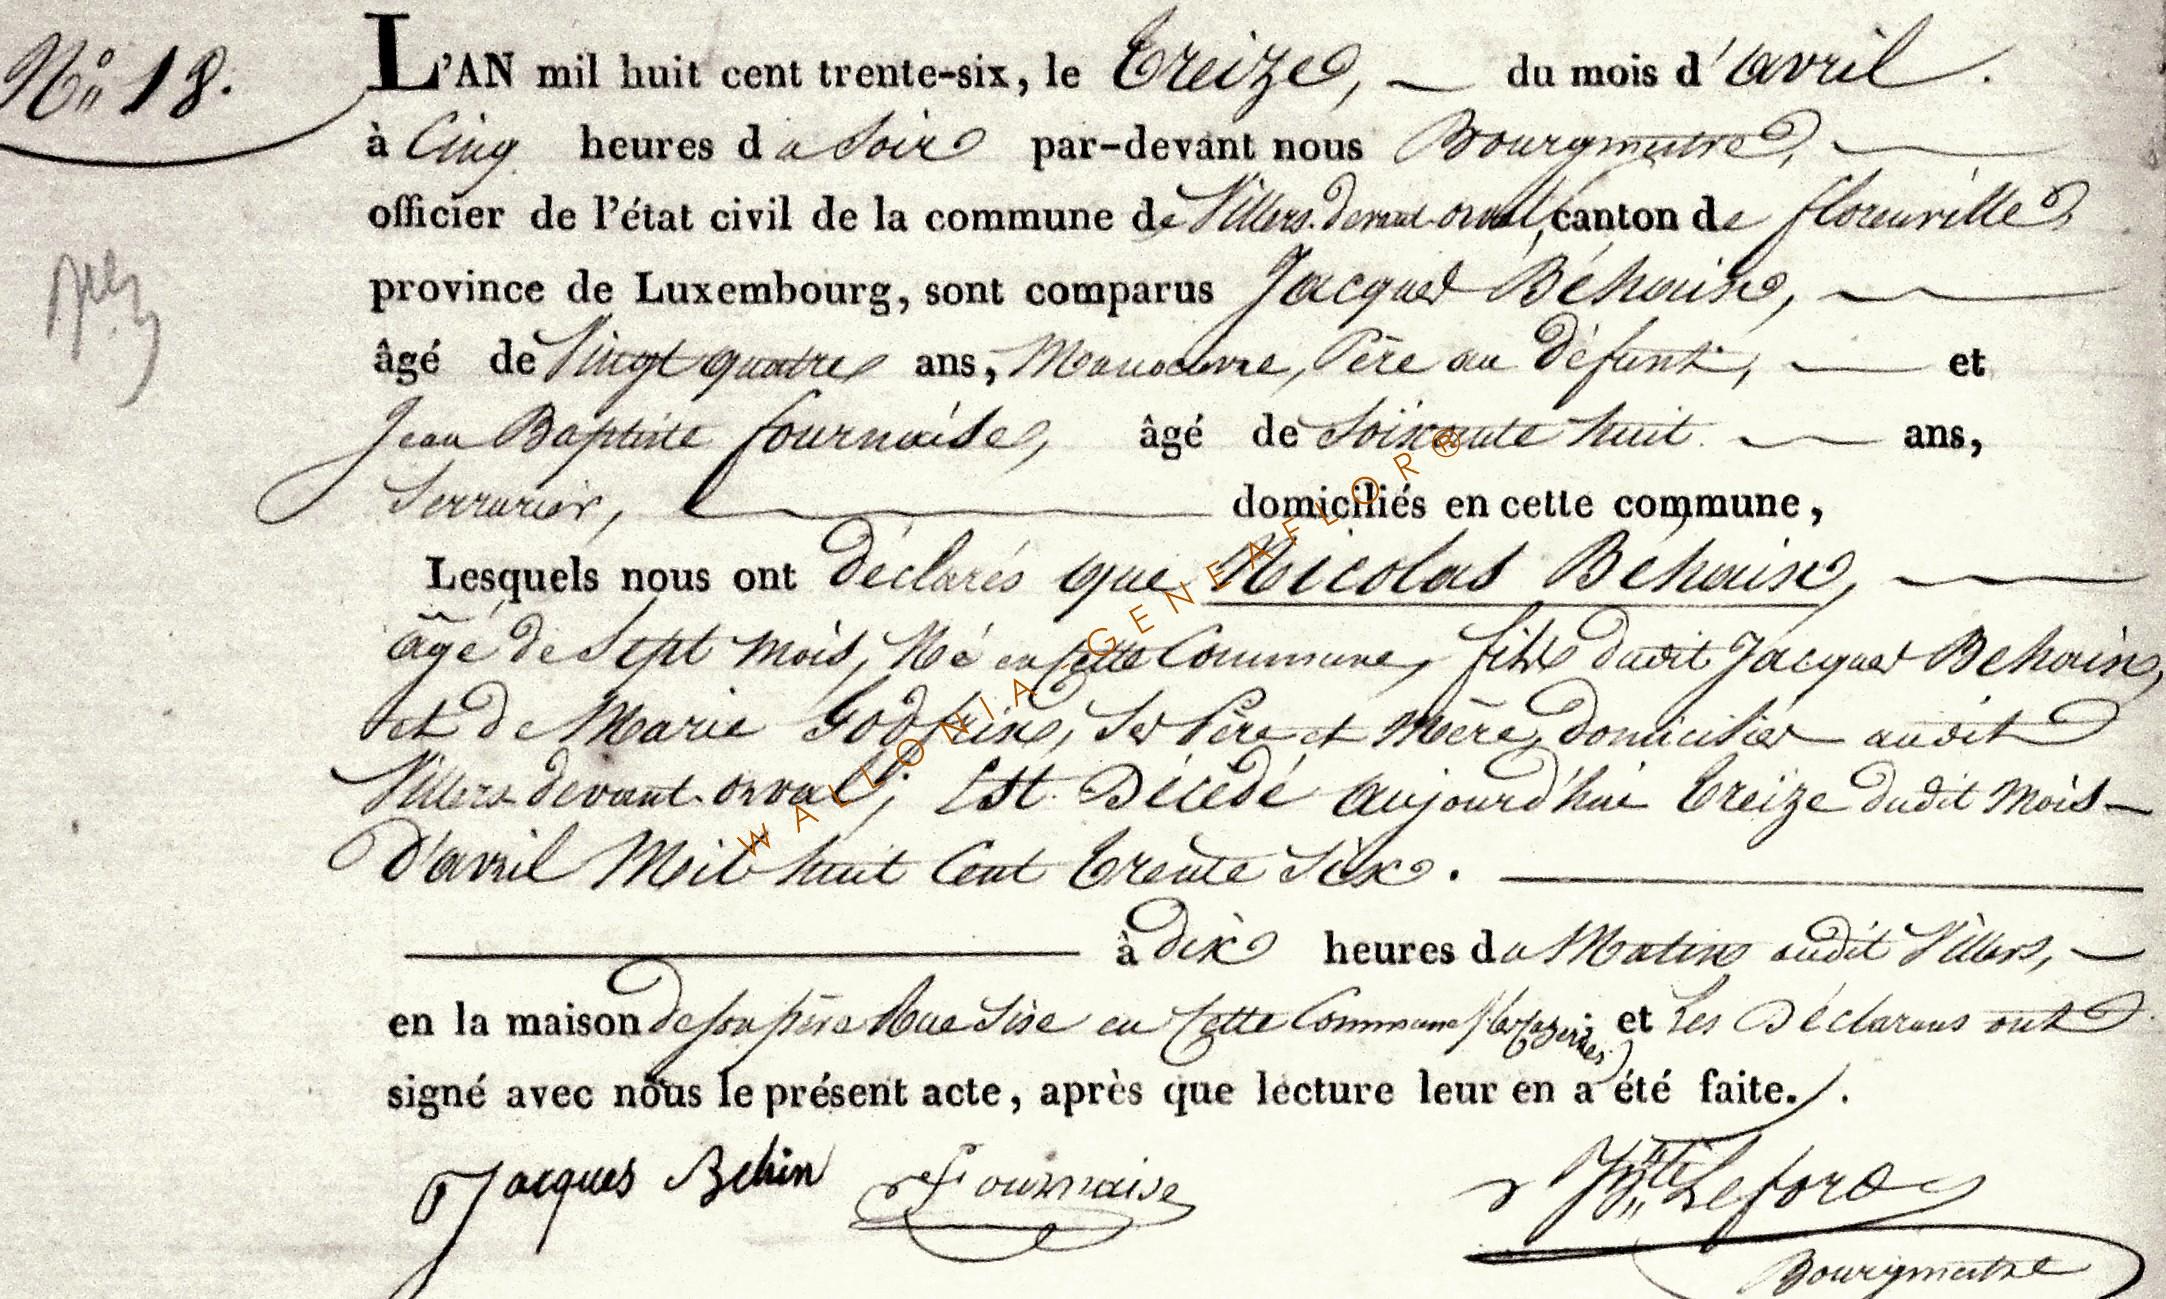 N° 18.
L'AN mil huit cent trente-six, le treize, du mois d'avril.
à Cinq heures du Soir par-devant nous Bourgmestre,
officier de l'état civil de la commune de Villers-devant-orval, canton de florenville
province de Luxembourg, sont comparus Jacques Béhain,
âgé de Vingt quatre ans, Manoeuvre, Père au Défunt, et
Jean Baptiste fournaise, âgé de Soixante huit ans,
Serrurier, domiciliés en cette commune,
Lesquels nous ont déclarés que Nicolas Béhain,
âgé de Sept Mois, Né en Cette Commune, fils dudit Jacques Béhain,
et de Marie Godfrin, Ses Père et Mère, domiciliés audit
Villers-devant-orval, Est Décédé aujourd'hui treize dudit Mois
D'avril Mil huit Cent trente Six.
à dix heures du Matin audit Villers,
en la maison de son père Rue Sise en Cette Commune et Les Déclarans ont
signé avec nous le présent acte, après que lecture leur en a été faite.
Jacques Behin Fournaise Leford
Bourgmestre
WALLONIA-GENEAFLOR®